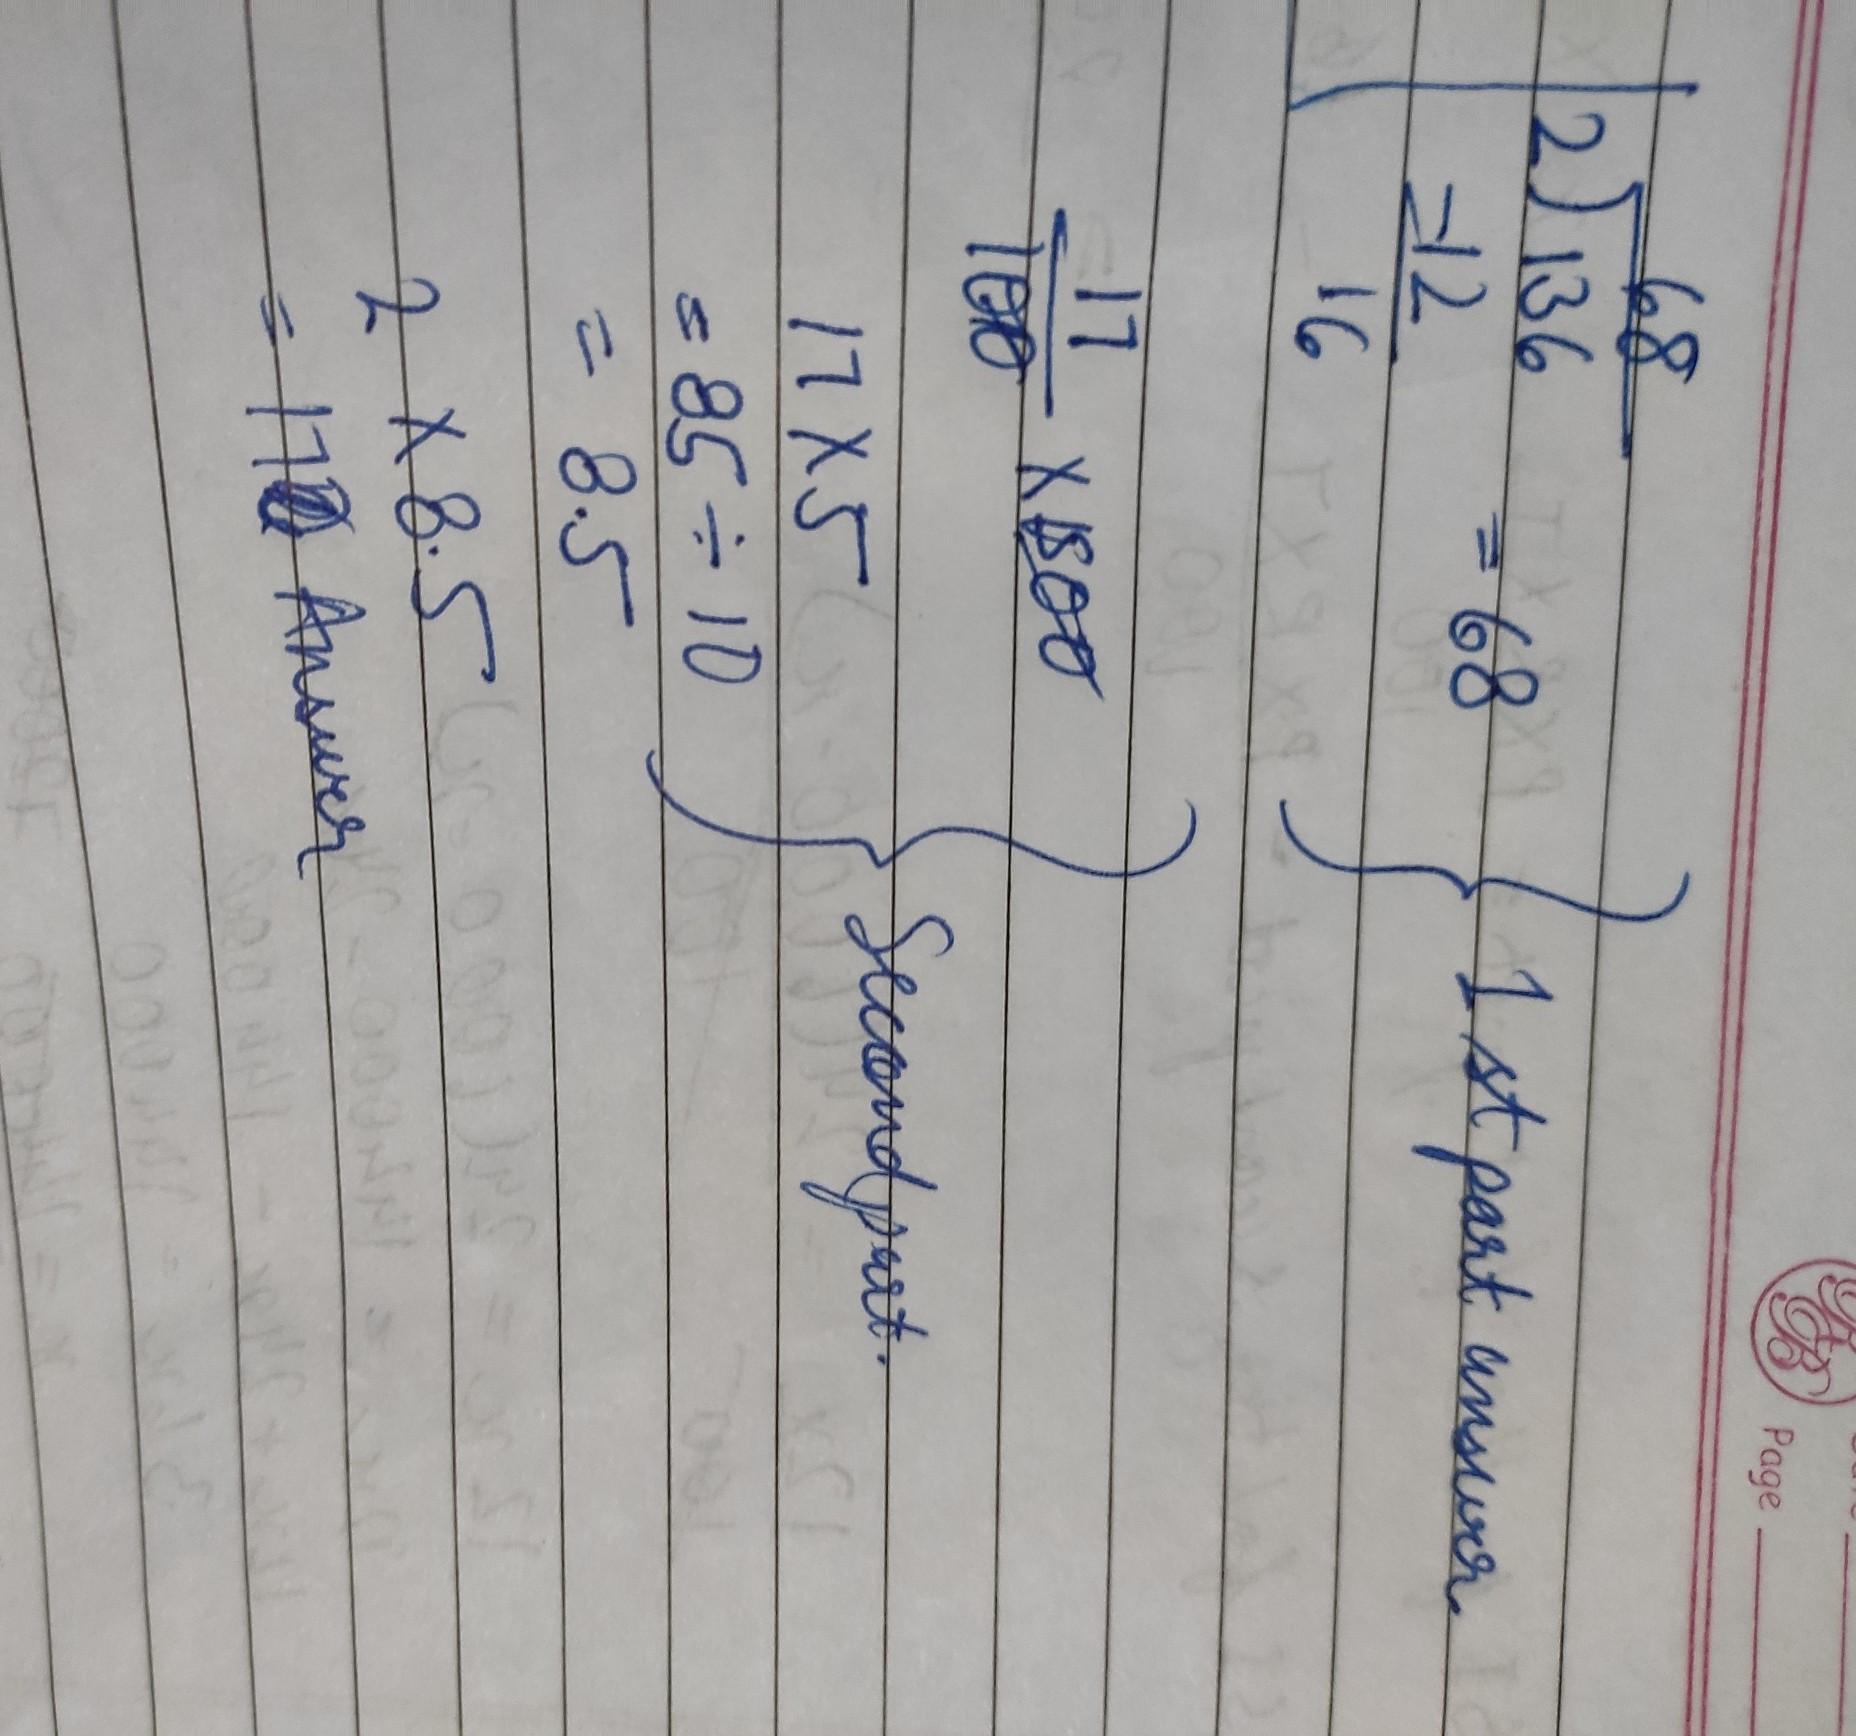 Page
68
2)136 = 68
-12
16
1st part answer
17/100 × 500
17 × 5
= 85 ÷ 10
= 8.5
Second part.
2 × 8.5
= 17 Answer